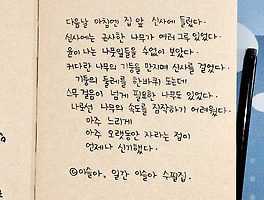 다음날 아침엔 집 앞 신사에 들렀다.
신사에는 근사한 나무가 여러 그루 있었다.
윤이 나는 나뭇잎들을 수없이 보았다.
커다란 나무의 기둥을 만지며 신사를 걸었다.
기둥의 둘레를 한바퀴 도는데
스무 걸음이 넘게 필요한 나무도 있었다.
나로선 나무의 속도를 짐작하기 어려웠다.
아주 느리게
아주 오랫동안 자라는 점이
언제나 신기했다.
©이슬아, 일간 이슬아 수필집.